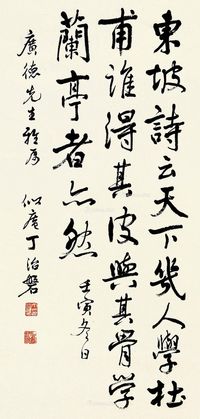 東坡詩云天下幾人學杜
甫誰得其皮與其骨学
蘭亭者亦然
壬寅冬日
廣德先生雅属
似庵丁治磐